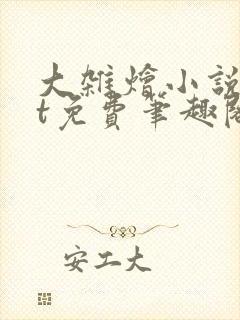 大雑燴小說
t免費筆趣閣
安工大